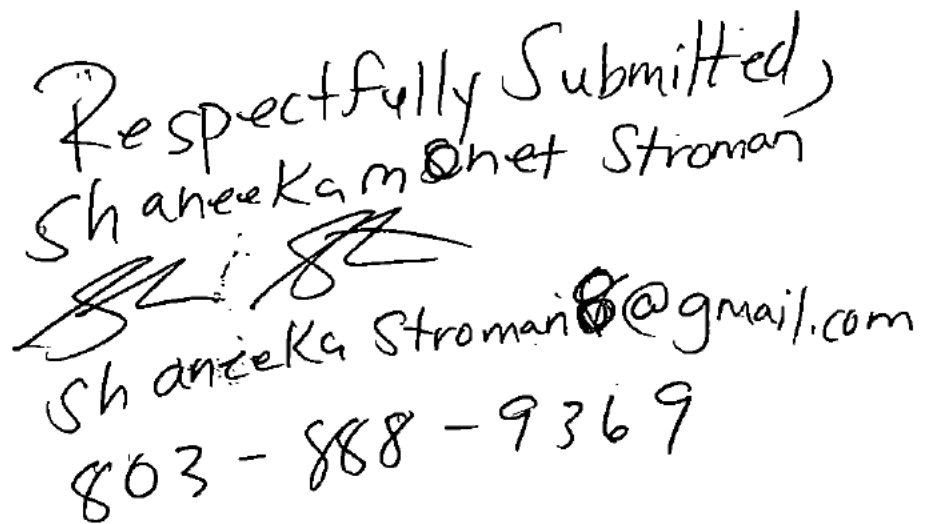 Respectfully Submitted,
Shaneeka monet Stroman
Shaneeka Stroman8@gmail.com
803-888-9369